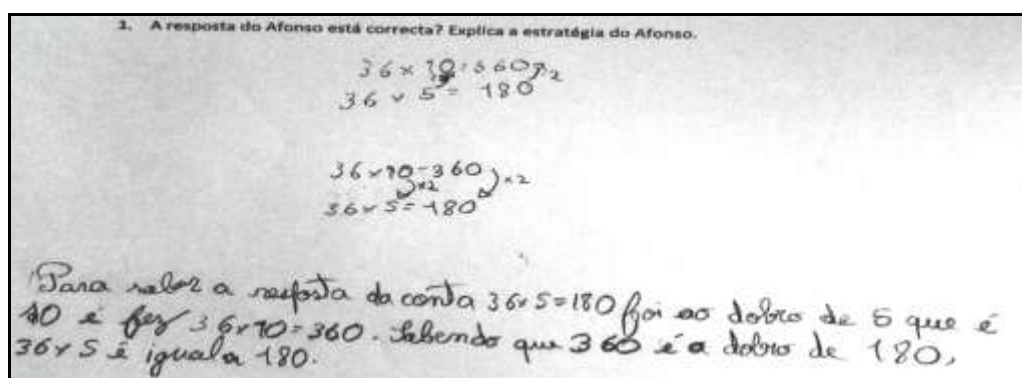 3. A resposta do Afonso está correcta? Explica a estratégia do Afonso.
36 × 10 = 360
×2
36 × 5 = 180
36 × 10 = 360
×2 ×2
36 × 5 = 180
Para saber a resposta da conta 36×5=180 foi ao dobro de 5 que é
10 e fez 36×10=360. Sabendo que 360 é a dobro de 180,
36×5 é igual a 180.